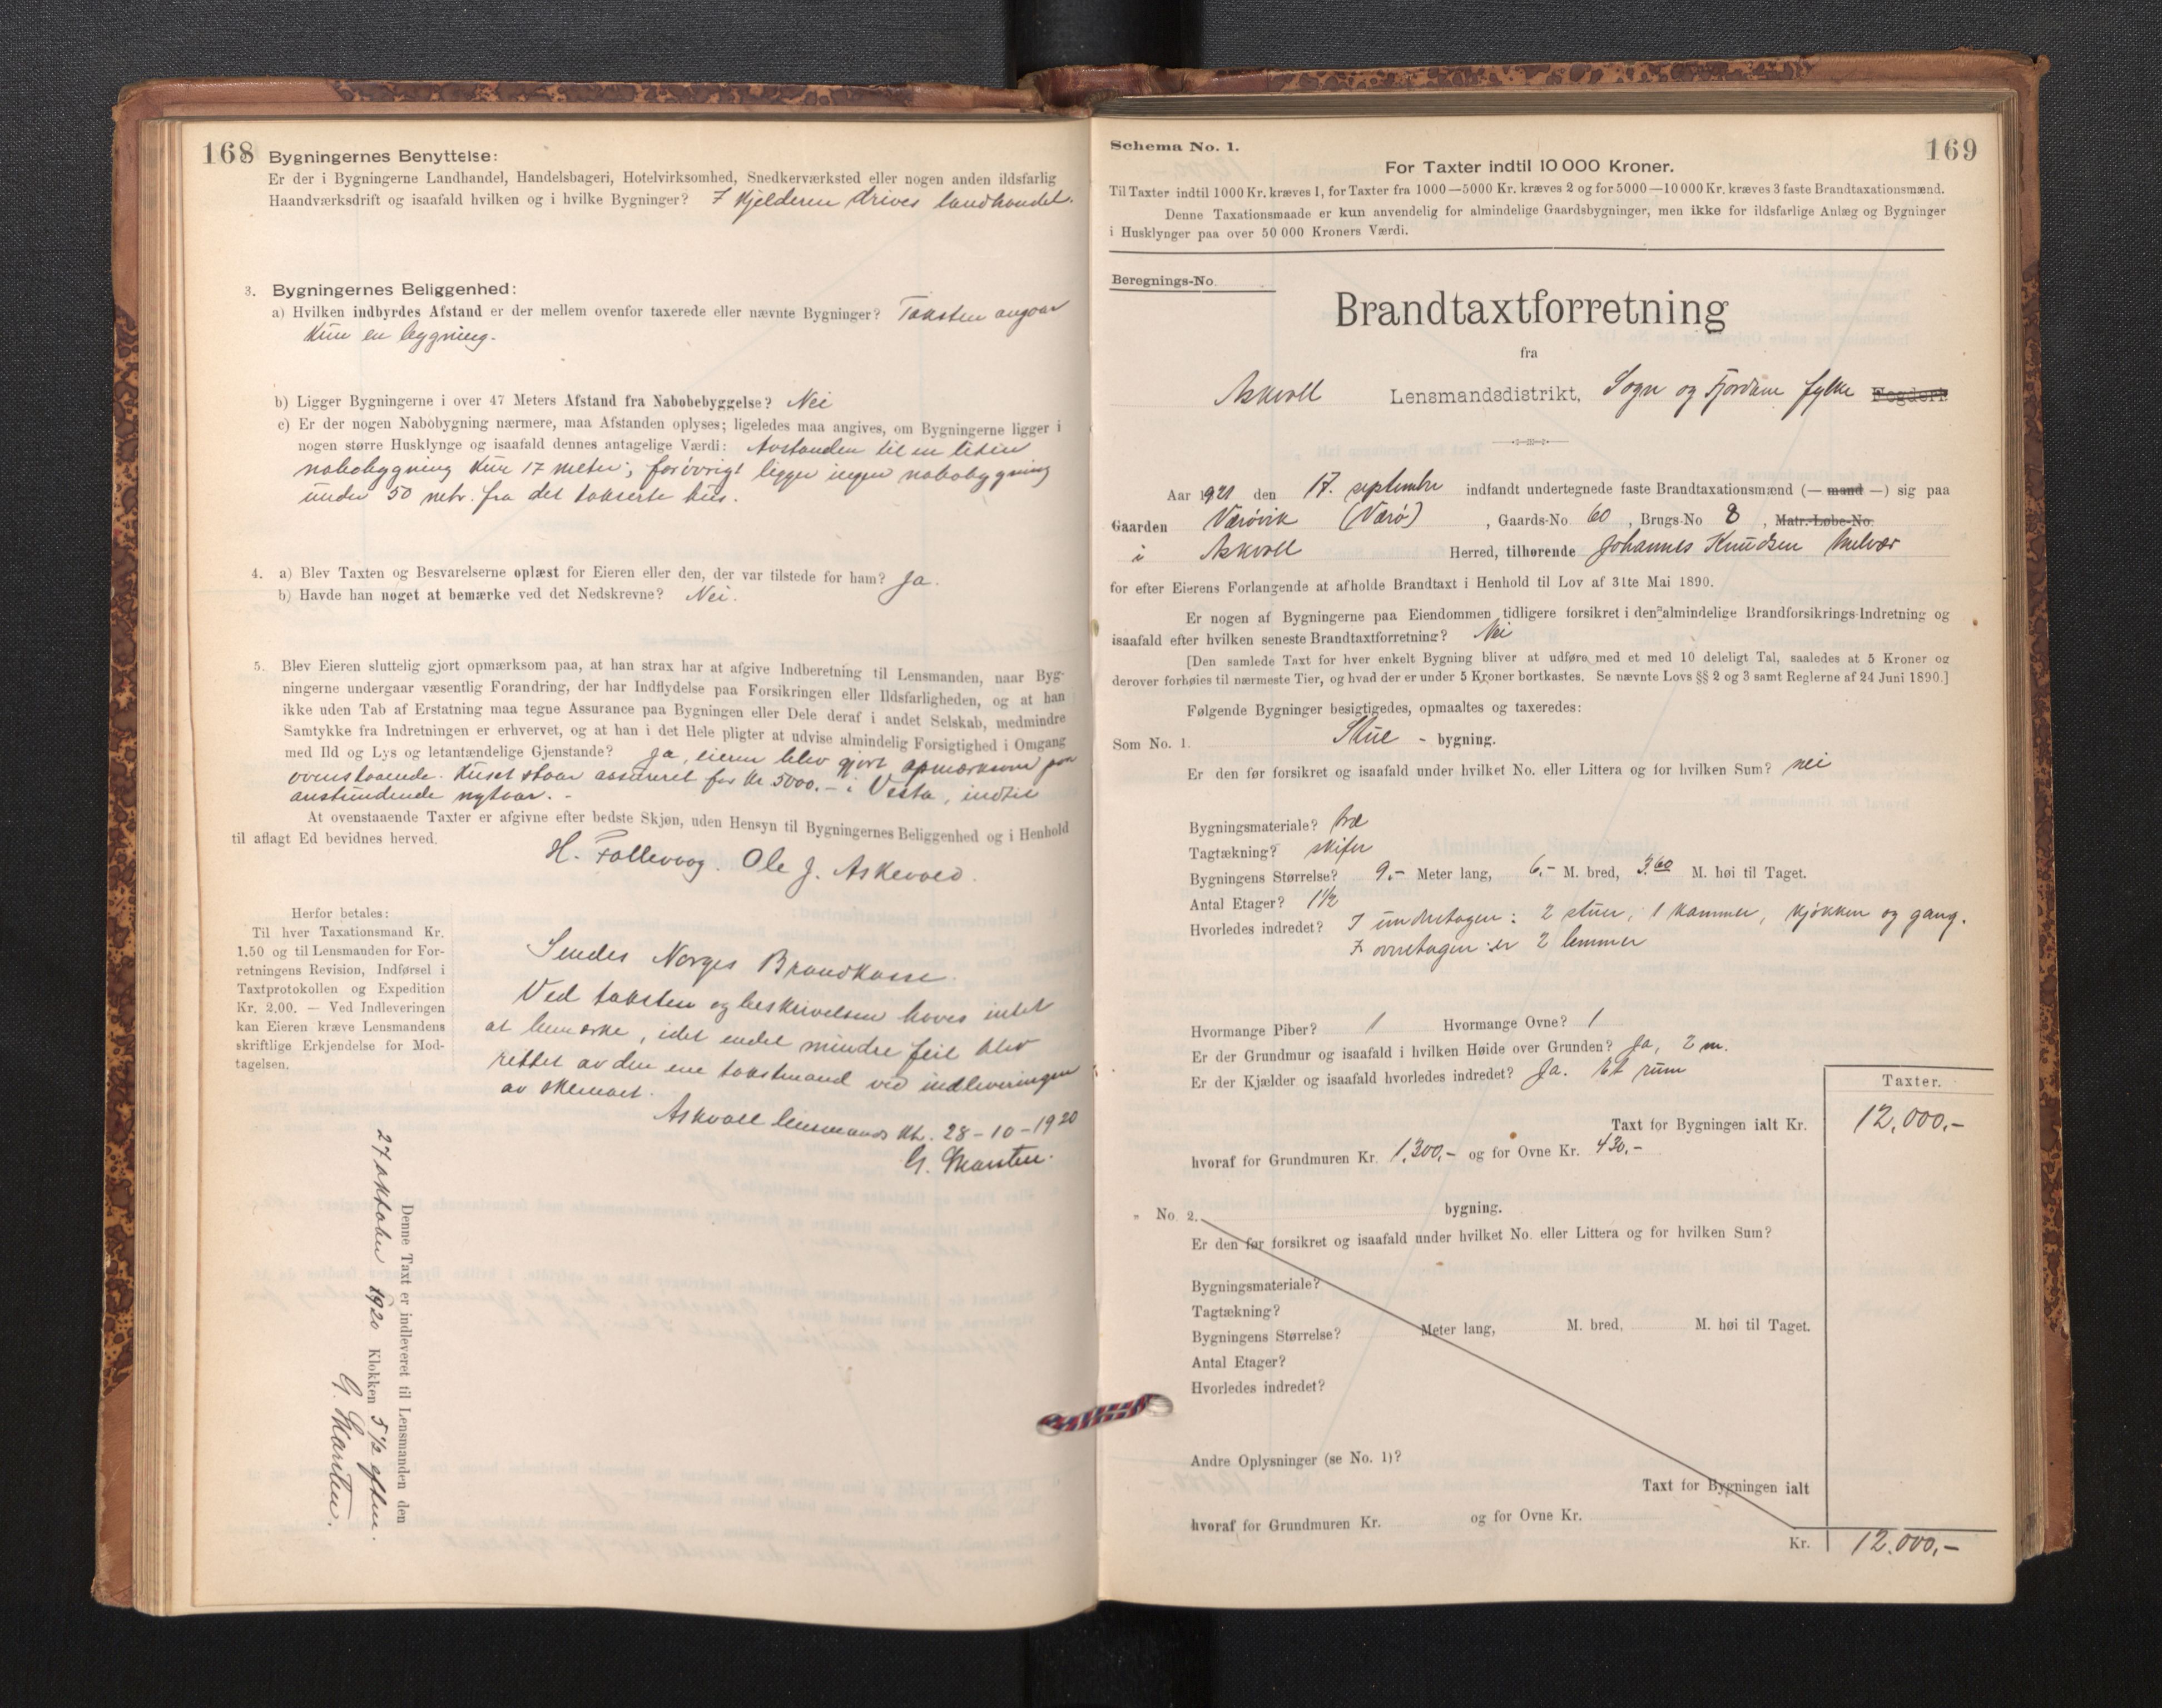 168
Bygningernes Benyttelse:
Er der i Bygningerne Landhandel, Handelsbageri, Hotelvirksomhed, Snedkerværksted eller nogen anden ildsfarlig
Haandværksdrift og isaafald hvilken og i hvilke Bygninger? I kjelderen drives landhandel.
3. Bygningernes Beliggenhed:
a) Hvilken indbyrdes Afstand er der mellem ovenfor taxerede eller nævnte Bygninger? Taksten angaar
kun en bygning.
b) Ligger Bygningerne i over 47 Meters Afstand fra Nabobebyggelse? Nei
c) Er der nogen Nabobygning nærmere, maa Afstanden oplyses; ligeledes maa angives, om Bygningerne ligger i
nogen større Husklynge og isaafald dennes antagelige Værdi: Avstanden til en liten
nabobygning kun 17 meter; forøvrigt ligger ingen nabobygning
under 50 metr. fra det takserte hus.
4. a) Blev Taxten og Besvarelserne oplæst for Eieren eller den, der var tilstede for ham? Ja.
b) Havde han noget at bemærke ved det Nedskrevne? Nei.
5. Blev Eieren sluttelig gjort opmærksom paa, at han strax har at afgive Indberetning til Lensmanden, naar Byg-
ningerne undergaar væsentlig Forandring, der har Indflydelse paa Forsikringen eller Ildsfarligheden, og at han
ikke uden Tab af Erstatning maa tegne Assurance paa Bygningen eller Dele deraf i andet Selskab, medmindre
Samtykke fra Indretningen er erhvervet, og at han i det Hele pligter at udvise almindelig Forsigtighed i Omgang
med Ild og Lys og letantændelige Gjenstande? Ja, eieren blev gjort opmerksom paa
ovenstaaende. Huset staar assureret for kr 5000.- i Vesta, indtil
anstundende nytaar. -
At ovenstaaende Taxter er afgivne efter bedste Skjøn, uden Hensyn til Bygningernes Beliggenhed og i Henhold
til aflagt Ed bevidnes herved.
H. Follevaag. Ole J. Askevold.
Herfor betales:
Til hver Taxationsmand Kr.
1.50 og til Lensmanden for For-
retningens Revision, Indførsel i
Taxtprotokollen og Expedition
Kr. 2.00. — Ved Indleveringen
kan Eieren kræve Lensmandens
skriftlige Erkjendelse for Mod-
tagelsen.
Sendes Norges Brandkasse.
Ved taksten og beskrivelsen haves intet
at bemerke, idet endel mindre feil blev
rettet av den ene takstmand ved indleveringen
av skemaet.
Askvoll lensmands ktr. 28-10-1920
Denne Taxt er indleveret til Lensmanden den
27 oktober 1920 Klokken 5 1/2 efterm.
169
Schema No. 1.
For Taxter indtil 10 000 Kroner.
Til Taxter indtil 1000 Kr. kræves 1, for Taxter fra 1000—5000 Kr. kræves 2 og for 5000—10 000 Kr. kræves 3 faste Brandtaxationsmænd.
Denne Taxationsmaade er kun anvendelig for almindelige Gaardsbygninger, men ikke for ildsfarlige Anlæg og Bygninger
i Husklynger paa over 50 000 Kroners Værdi.
Beregnings-No.
Brandtaxtforretning
fra
Askvoll Lensmandsdistrikt, Sogn og Fjordane fylke Fogderi
Aar 1920 den 17. september indfandt undertegnede faste Brandtaxationsmænd (— mand —) sig paa
Gaarden Værøvik (Værø), Gaards-No 60, Brugs-No 8, Matr.-Løbe-No.
i Askvoll Herred, tilhørende Johannes Knudsen Melvær
for efter Eierens Forlangende at afholde Brandtaxt i Henhold til Lov af 31te Mai 1890.
Er nogen af Bygningerne paa Eiendommen tidligere forsikret i den almindelige Brandforsikrings-Indretning og
isaafald efter hvilken seneste Brandtaxtforretning? Nei
[Den samlede Taxt for hver enkelt Bygning bliver at udføre med et med 10 deleligt Tal, saaledes at 5 Kroner og
derover forhøies til nærmeste Tier, og hvad der er under 5 Kroner bortkastes. Se nævnte Lovs §§ 2 og 3 samt Reglerne af 24 Juni 1890.]
Følgende Bygninger besigtigedes, opmaaltes og taxeredes:
Som No. 1. Stue - bygning.
Er den før forsikret og isaafald under hvilket No. eller Littera og for hvilken Sum? nei
Bygningsmateriale? træ
Tagtækning? skifer
Bygningens Størrelse? 9.- Meter lang, 6.- M. bred, 3.60 M. høi til Taget.
Antal Etager? 1 1/2
Hvorledes indredet? I underetagen: 2 stuer, 1 kammer, kjøkken og gang.
I overetagen er 2 lemmer
Hvormange Piber? 1 Hvormange Ovne? 1
Er der Grundmur og isaafald i hvilken Høide over Grunden? Ja, 2 m.
Er der Kjælder og isaafald hvorledes indredet? Ja. Et rum
Taxter.
Taxt for Bygningen ialt Kr. 12,000,-
hvoraf for Grundmuren Kr. 1,300,- og for Ovne Kr. 430,-
" No. 2. bygning.
Er den før forsikret og isaafald under hvilket No. eller Littera og for hvilken Sum?
Bygningsmateriale?
Tagtækning?
Bygningens Størrelse? Meter lang, M. bred, M. høi til Taget.
Antal Etager?
Hvorledes indredet?
Andre Oplysninger (se No. 1)?
Taxt for Bygningen ialt
hvoraf for Grundmuren Kr. og for Ovne Kr.
Kr. 12.000,-